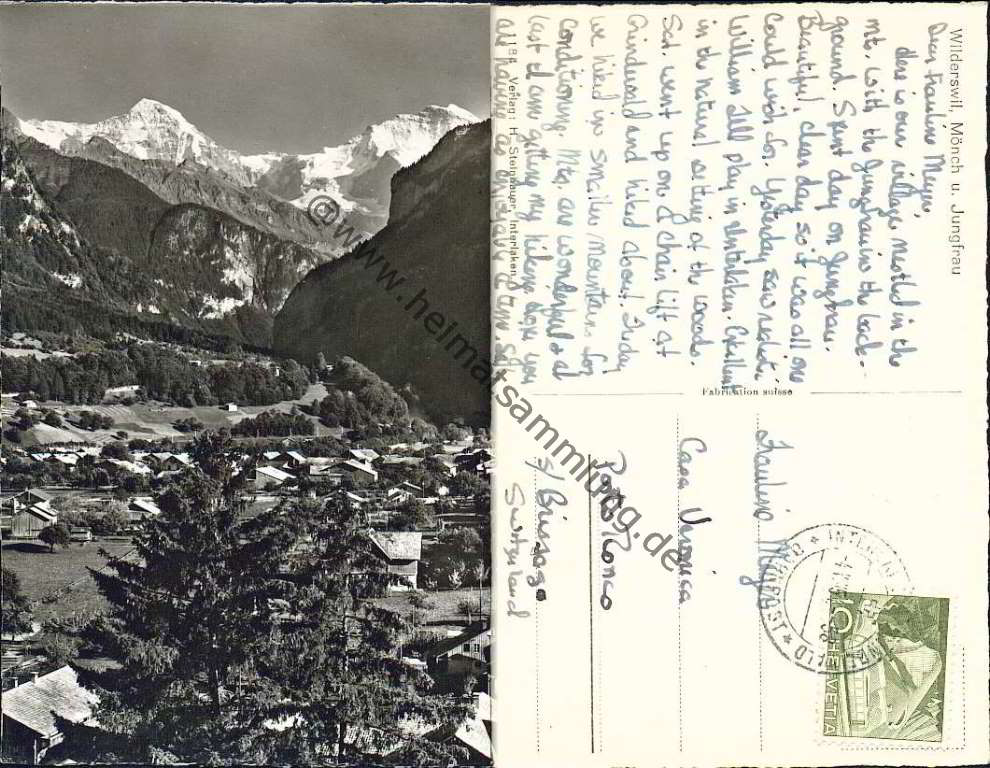 Wilderswil, Mönch u. Jungfrau
Dear Fraulein Meyer,
Here is our village nestled in the
mts. with the Jungfrau in the back-
ground. Spent day on Jungfrau.
Beautiful, clear day so it was all one
could wish for. Yesterday saw
William Tell play in Interlaken.
in the natural setting of the woods.
Sat. went up on a chair lift at
Grindelwald and hiked about. Today
we hiked in smaller mountains for
conditioning. Mts. are wonderful & at
last I am getting my hiking. Hope you
are having as enjoyable a time.
Verlag: H. Steinhauer, Interlaken
Fabrication suisse
Fraulein Meyer
Casa Veronica
Porto Ronco
s/ Brissago
Switzerland
INTERLAKEN
10
HELVETIA
© www.heimatsammlung.de